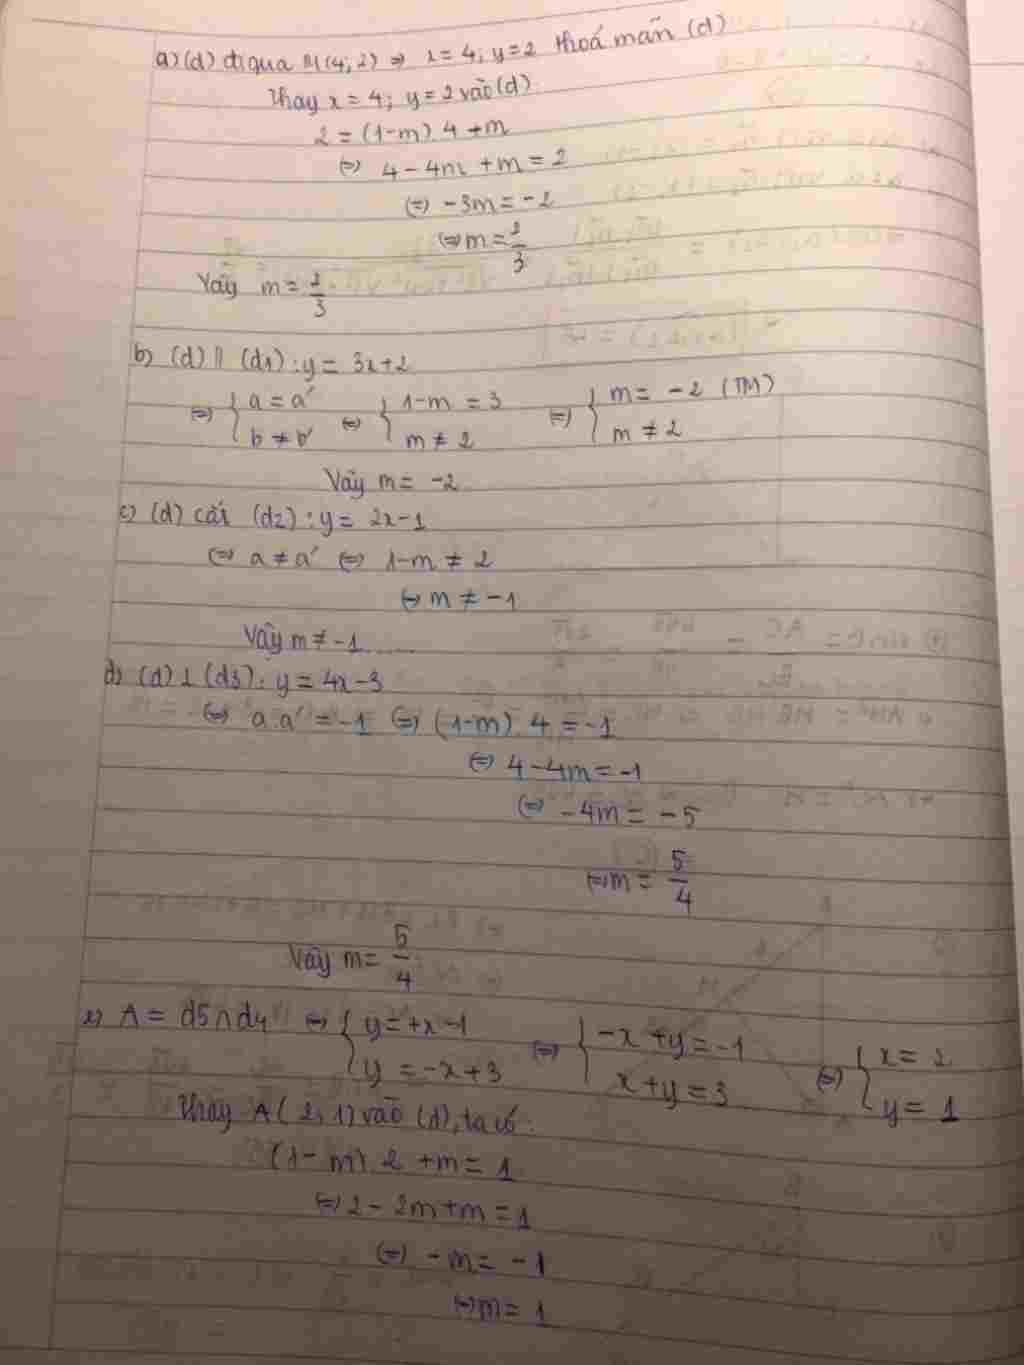 a) (d) đi qua M(4; 2) => x = 4; y = 2 thoả mãn (d)
Thay x = 4; y = 2 vào (d)
2 = (1-m).4 + m
<=> 4 - 4m + m = 2
<=> -3m = -2
<=> m = 2/3
Vậy m = 2/3
b) (d) // (d1): y = 3x+2
<=> { a = a' ; b ≠ b' <=> { 1-m = 3 ; m ≠ 2 <=> { m = -2 (TM) ; m ≠ 2
Vậy m = -2
c) (d) cắt (d2): y = 2x-1
<=> a ≠ a' <=> 1-m ≠ 2
<=> m ≠ -1
Vậy m ≠ -1 .....
d) (d) ⊥ (d3): y = 4x-3
<=> a.a' = -1 <=> (1-m).4 = -1
<=> 4-4m = -1
<=> -4m = -5
<=> m = 5/4
Vậy m = 5/4
e) A = d5 ∩ d4 <=> { y = +x-1 ; y = -x+3 <=> { -x+y = -1 ; x+y = 3 <=> { x = 2 ; y = 1
Thay A(2; 1) vào (d), ta có:
(1-m).2 + m = 1
<=> 2 - 2m + m = 1
<=> -m = -1
<=> m = 1